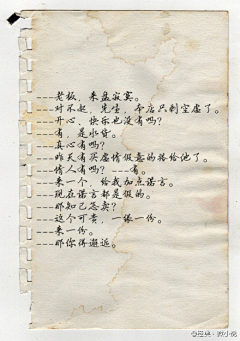 ---老板，来盘寂寞。
---对不起，先生，本店只剩空虚了。
---开心，快乐也没有吗？
---有，是水货。
---真心有吗？
---昨天有买虚情假意的搭给他了。
---情人有吗？ ---有。
---来一个，给我加点诺言。
---现在诺言都是假的。
---那知己怎卖？
---这个可贵，一缘一份。
---来一份。
---那你得邂逅。
微小说